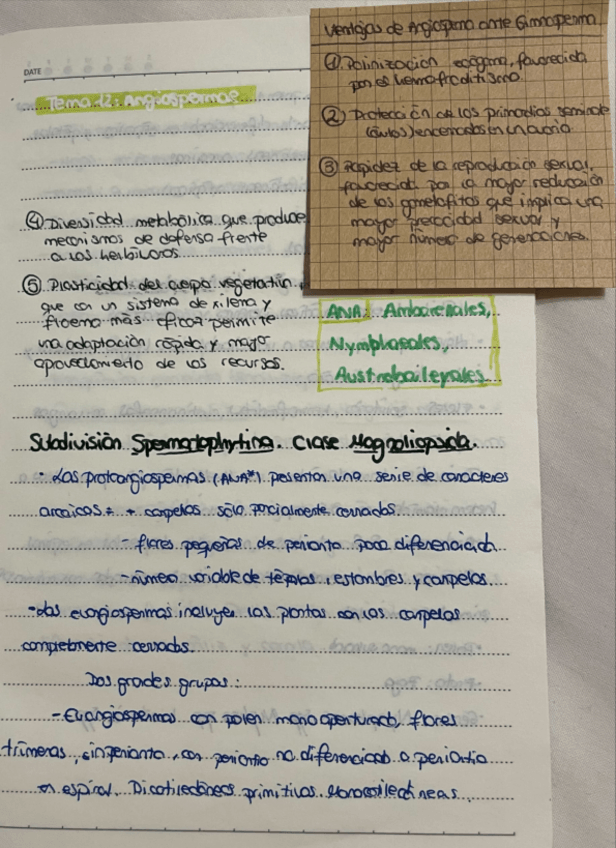 DATE
Tema 12: Angiospermas
Ventajas de Angiosperma ante Gimnosperma.
① Polinización exógama, favorecida
por el hermafroditismo
② Protección de los primordios seminale
(óvulos) encerrados en un ovario
③ Rapidez de la reproducción sexual,
favorecida por la mayor reducción
de los gametofitos que implica una
mayor precocidad sexual y
mayor número de generaciones.
④ Diversidad metabólica que produce
mecanismos de defensa frente
a los herbívoros
⑤ Plasticidad del cuerpo vegetativo,
que con un sistema de xilema y
floema más eficaz permite
una adaptación rápida y mayor
aprovechamiento de los recursos.
ANA: Amborellales,
Nymphaeales,
Austrobaileyales
Subdivisión Spermatophytina. Clase Magnoliopsida.
· Las protoangiospermas (ANA*) presentan una serie de caracteres
arcaicos: + carpelos sólo parcialmente cerrados.
- flores pequeñas de perianto poco diferenciado
- número variable de tépalos, estambres y carpelos.
- Las euangiospermas incluyen las plantas con los carpelos
completamente cerrados.
Dos grandes grupos:
- Euangiospermas con polen monoaperturado, flores
trímeras, sin perianto, con perianto no diferenciado o perianto
en espiral. Dicotiledóneas primitivas. Monocotiledóneas.